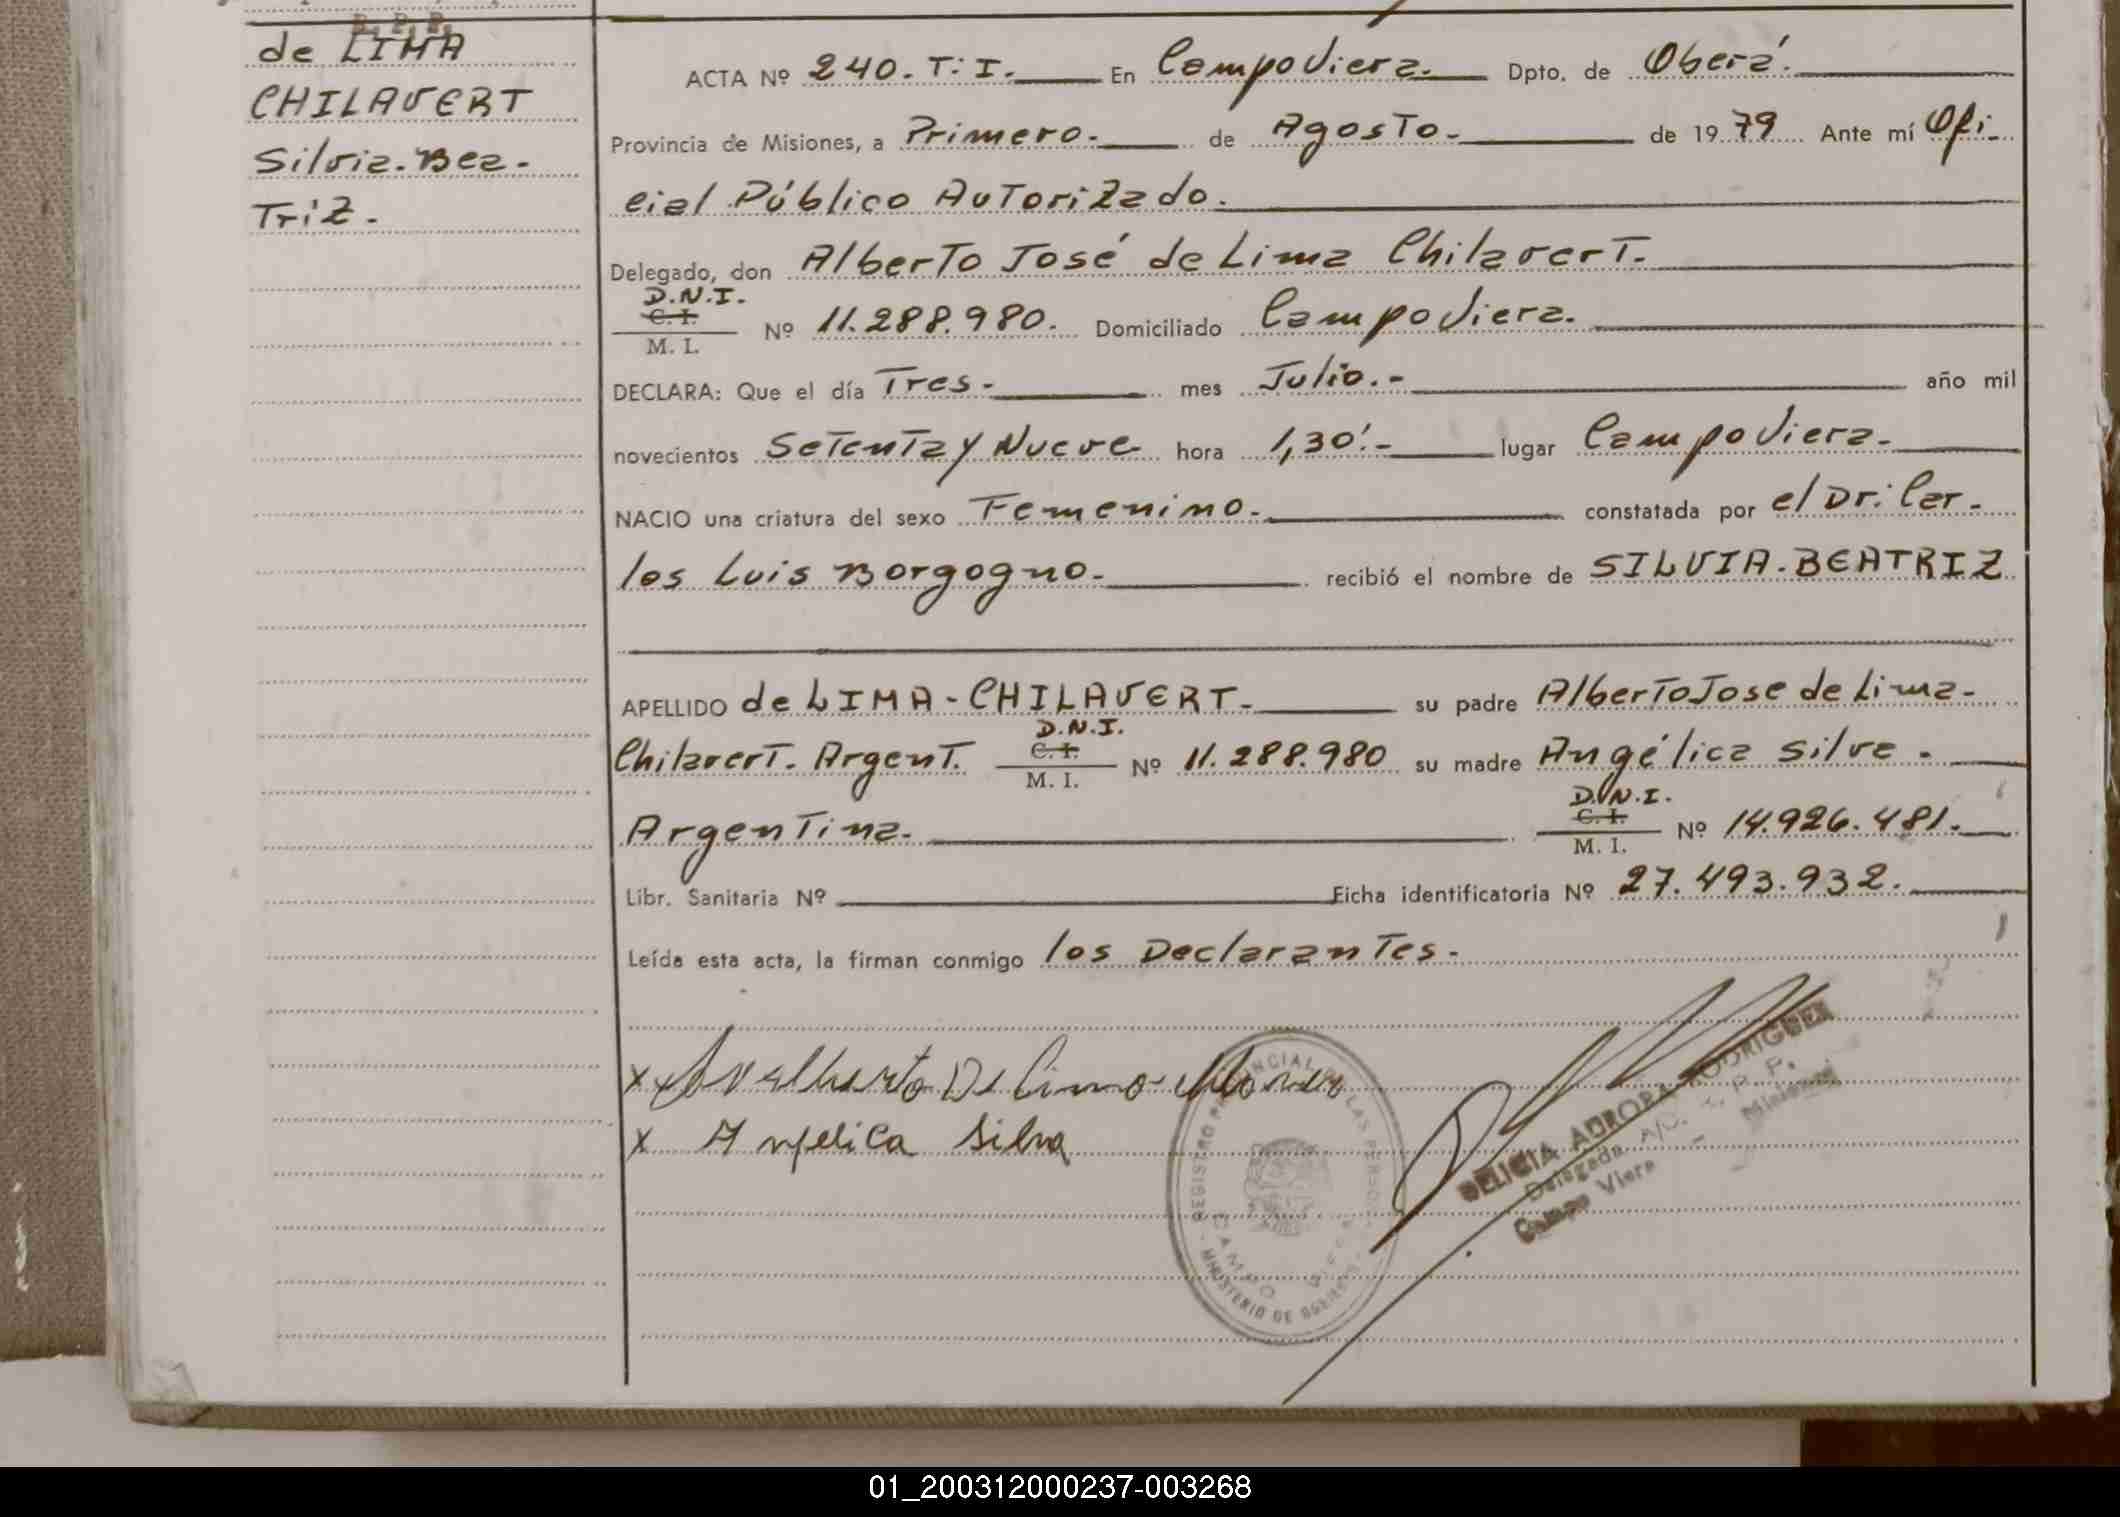 R. P. P.
de LIMA
CHILAVERT
Silvia. Bea-
Triz.
ACTA Nº 240. T: I. En Campo Viera. Dpto. de Oberá.
Provincia de Misiones, a Primero. de Agosto. de 19 79 Ante mí Ofi-
cial Público Autorizado.
Delegado, don Alberto José de Lima Chilavert.
D.N.I.
C. I.
M. I.
Nº 11.288.980. Domiciliado Campo Viera.
DECLARA: Que el día Tres. mes Julio. año mil
novecientos Setenta y Nueve hora 1,30'. lugar Campo Viera.
NACIO una criatura del sexo Femenino. constatada por el Dr. Car-
los Luis Borgogno. recibió el nombre de SILVIA. BEATRIZ
APELLIDO de LIMA - CHILAVERT. su padre Alberto Jose de Lima
D.N.I.
Chilavert. Argent. C. I. Nº 11.288.980 su madre Angélica Silva.
M. I.
D.N.I.
Argentina. C. I. Nº 14.926.481.
M. I.
Libr. Sanitaria Nº Ficha identificatoria Nº 27.493.932.
Leída esta acta, la firman conmigo los Declarantes.
x Alberto De Lima
x Angelica Silva
REGISTRO PROVINCIAL DE LAS PERSONAS
CAMPO VIERA
MINISTERIO DE GOBIERNO
DELICIA AURORA RODRIGUEZ
Delegada A/C. R. P. P.
Campo Viera - Misiones
01_200312000237-003268